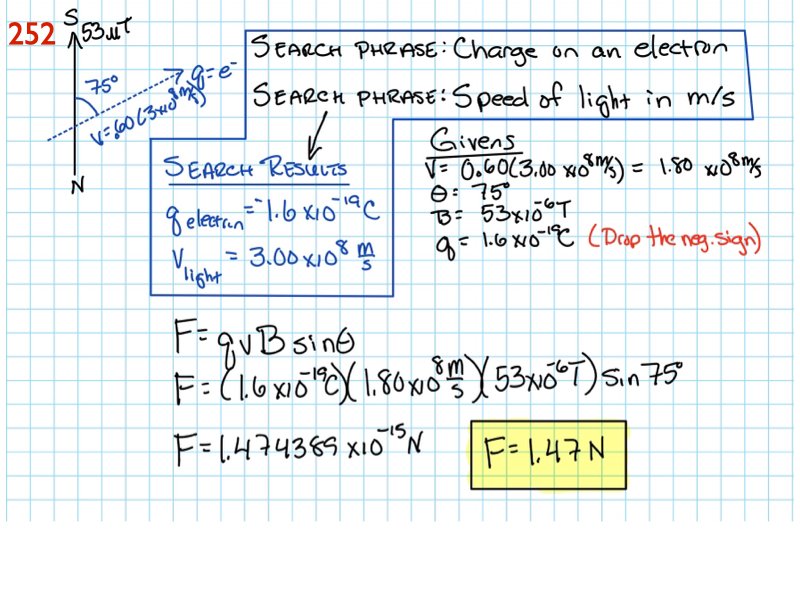 252
S
53 μT
75°
q=e⁻
V=.60(3×10⁸m/s)
N
SEARCH PHRASE: Charge on an electron
SEARCH PHRASE: Speed of light in m/s
SEARCH RESULTS
q electron = -1.6 x10⁻¹⁹C
V light = 3.00x10⁸ m/s
Givens
V= 0.60(3.00 x10⁸m/s) = 1.80 x10⁸m/s
θ= 75°
B= 53x10⁻⁶T
q = 1.6x10⁻¹⁹C (Drop the neg. sign)
F= qvB sinθ
F= (1.6 x10⁻¹⁹C)(1.80x10⁸ m/s)(53x10⁻⁶T) sin 75°
F= 1.474389 x10⁻¹⁵ N
F= 1.47 N